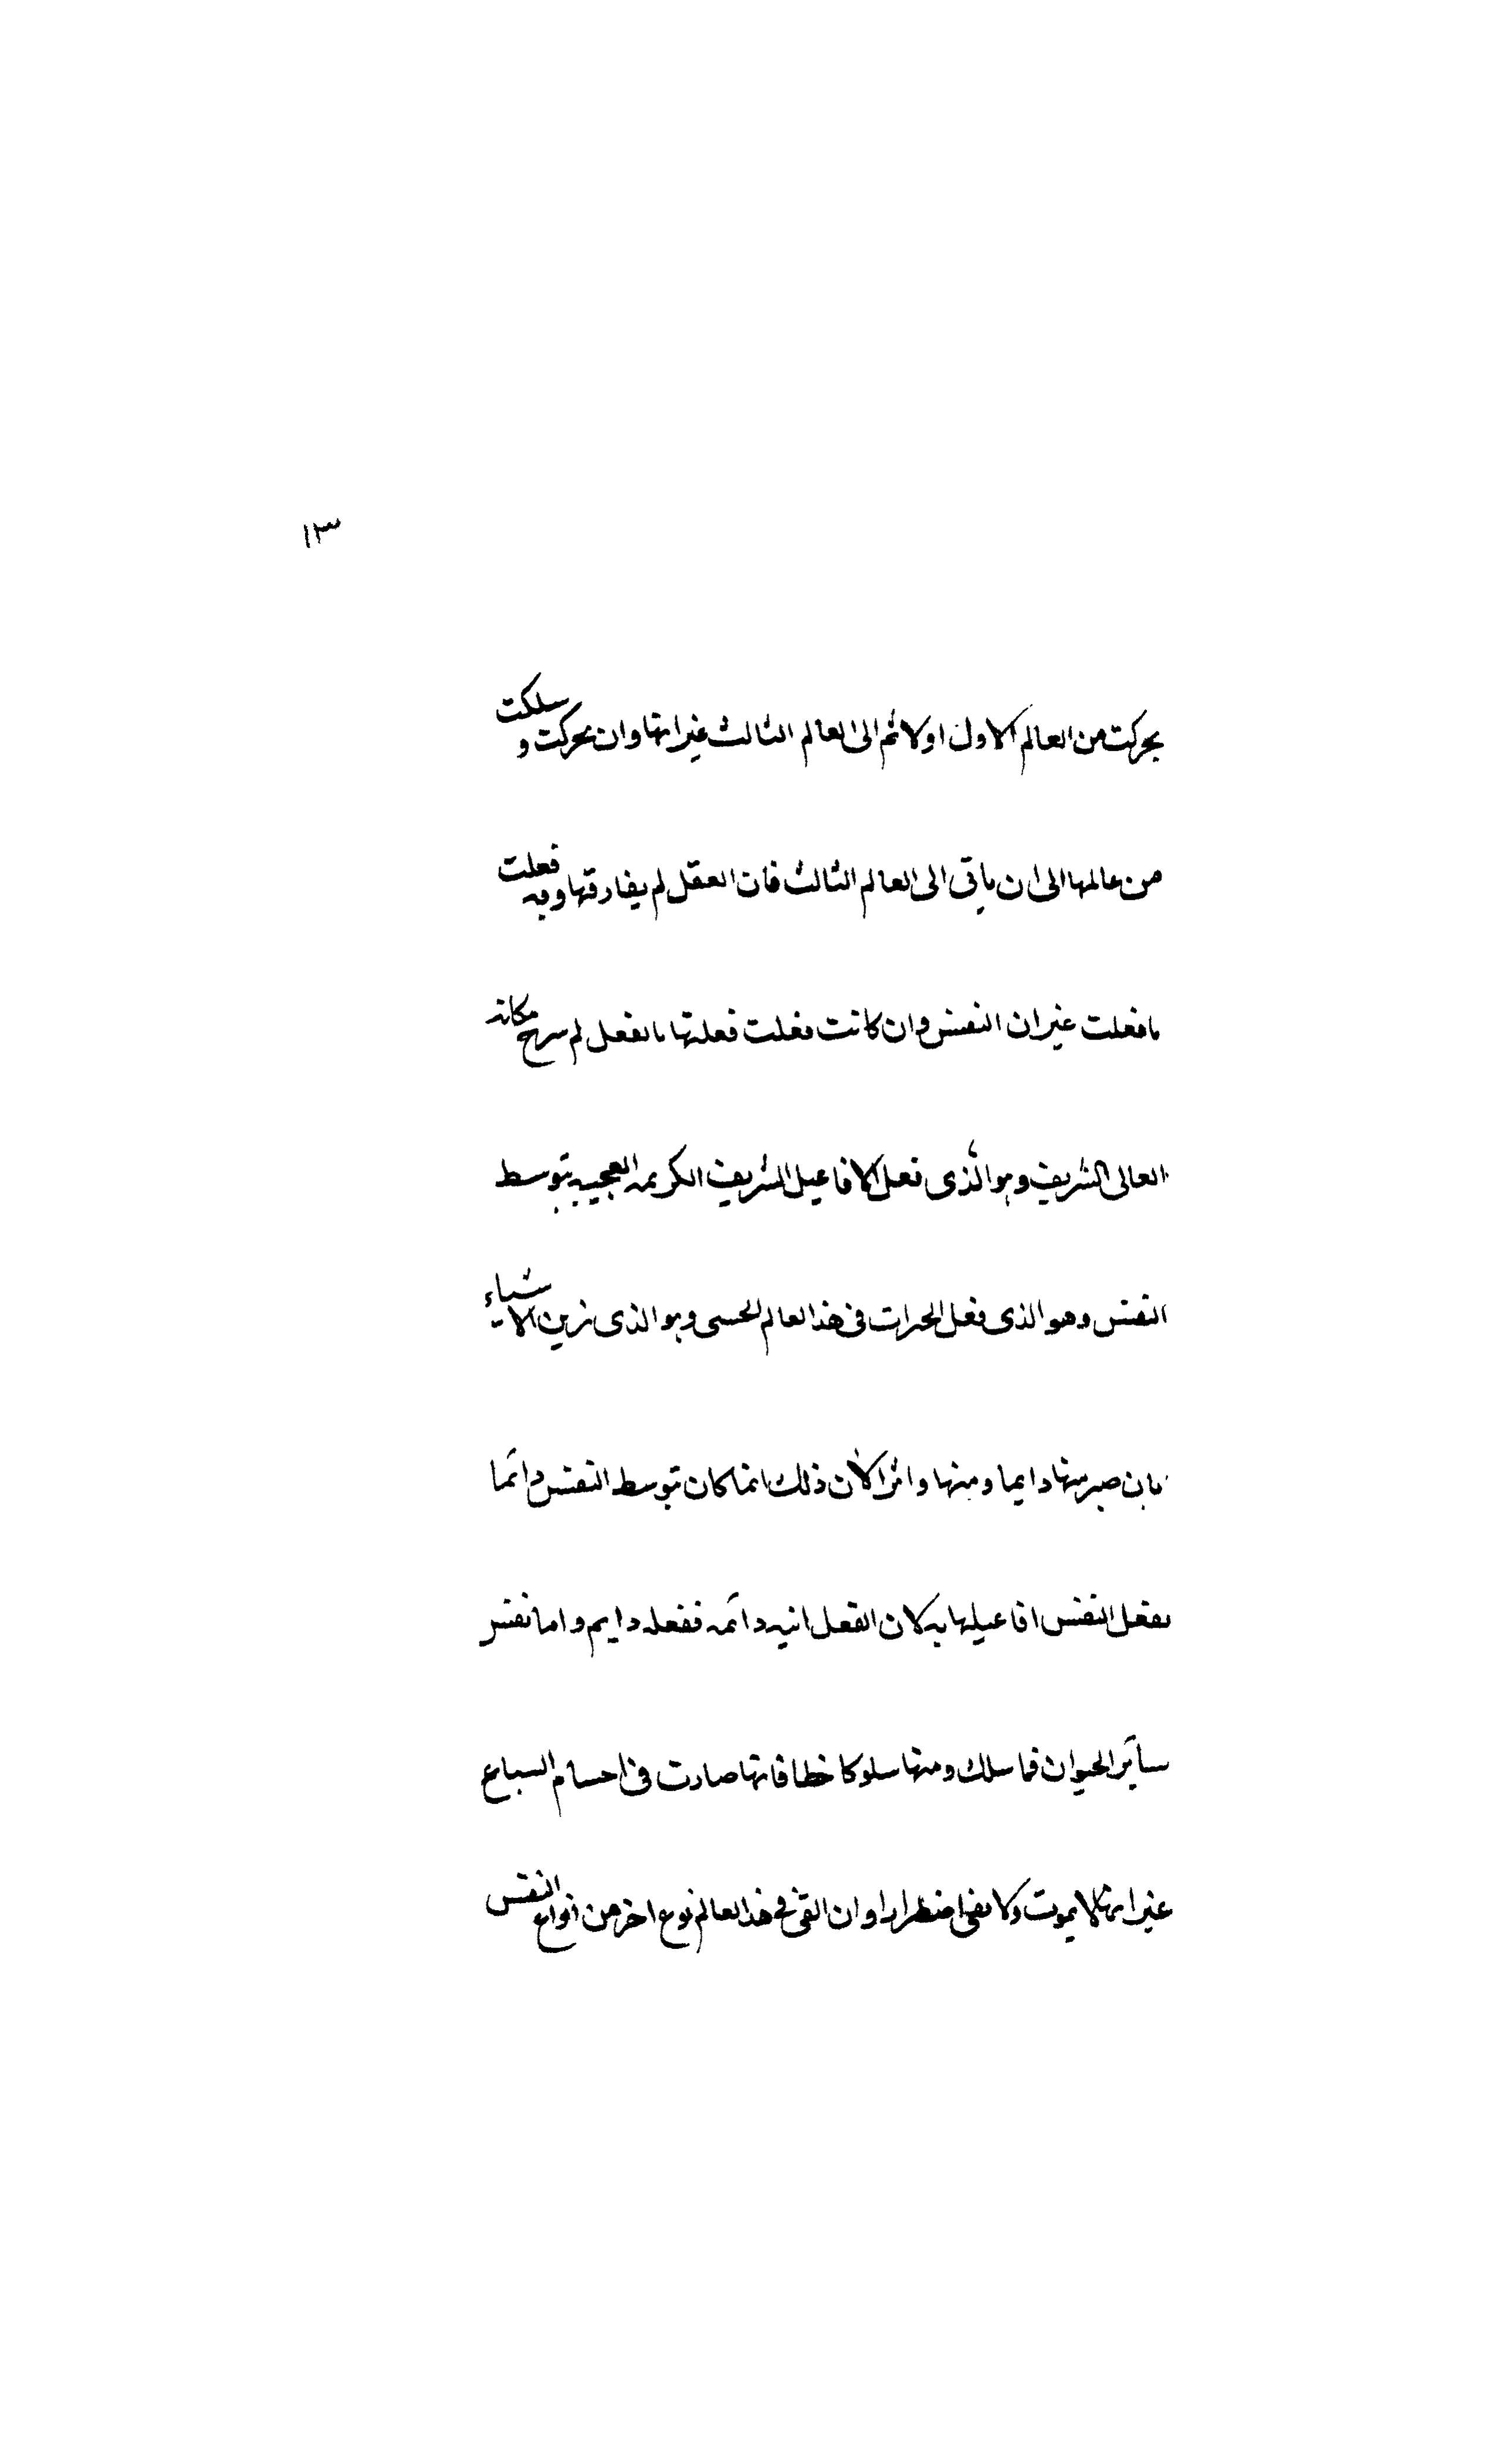 ١٣
تحركت من العالم الاول اولا ثم الى العالم الثالث غير انها وان تحركت و سلكت
من عالمها الى ان ياتى الى العالم الثالث فان العقل لم يفارقها وبه فعلت
ما فعلت غير ان النفس وان كانت فعلت فعلتها بالفعل لم يبرح مكانه
العالى الشريف وهو الذى فعل الافاعيل الشريف الكريمه العجيبه بتوسط
النفس وهو الذى فعل الخيرات فى هذا العالم الحسى وهو الذى زين الاشياء
بان صير منها دايما ومنها داثرا لان ذلك انما كان بتوسط النفس دائما
تفعل النفس افاعيلها به لان الفعل انيه دائمه ففعله دايم واما نفس
سائر الحيوان فما سلك ومنها سلوكا خطا فانها صارت فى اجسام السباع
غير انها لا يموت ولا يفنى اضطرارا وان القى فى هذا العالم نوع اخر من انواع النفس